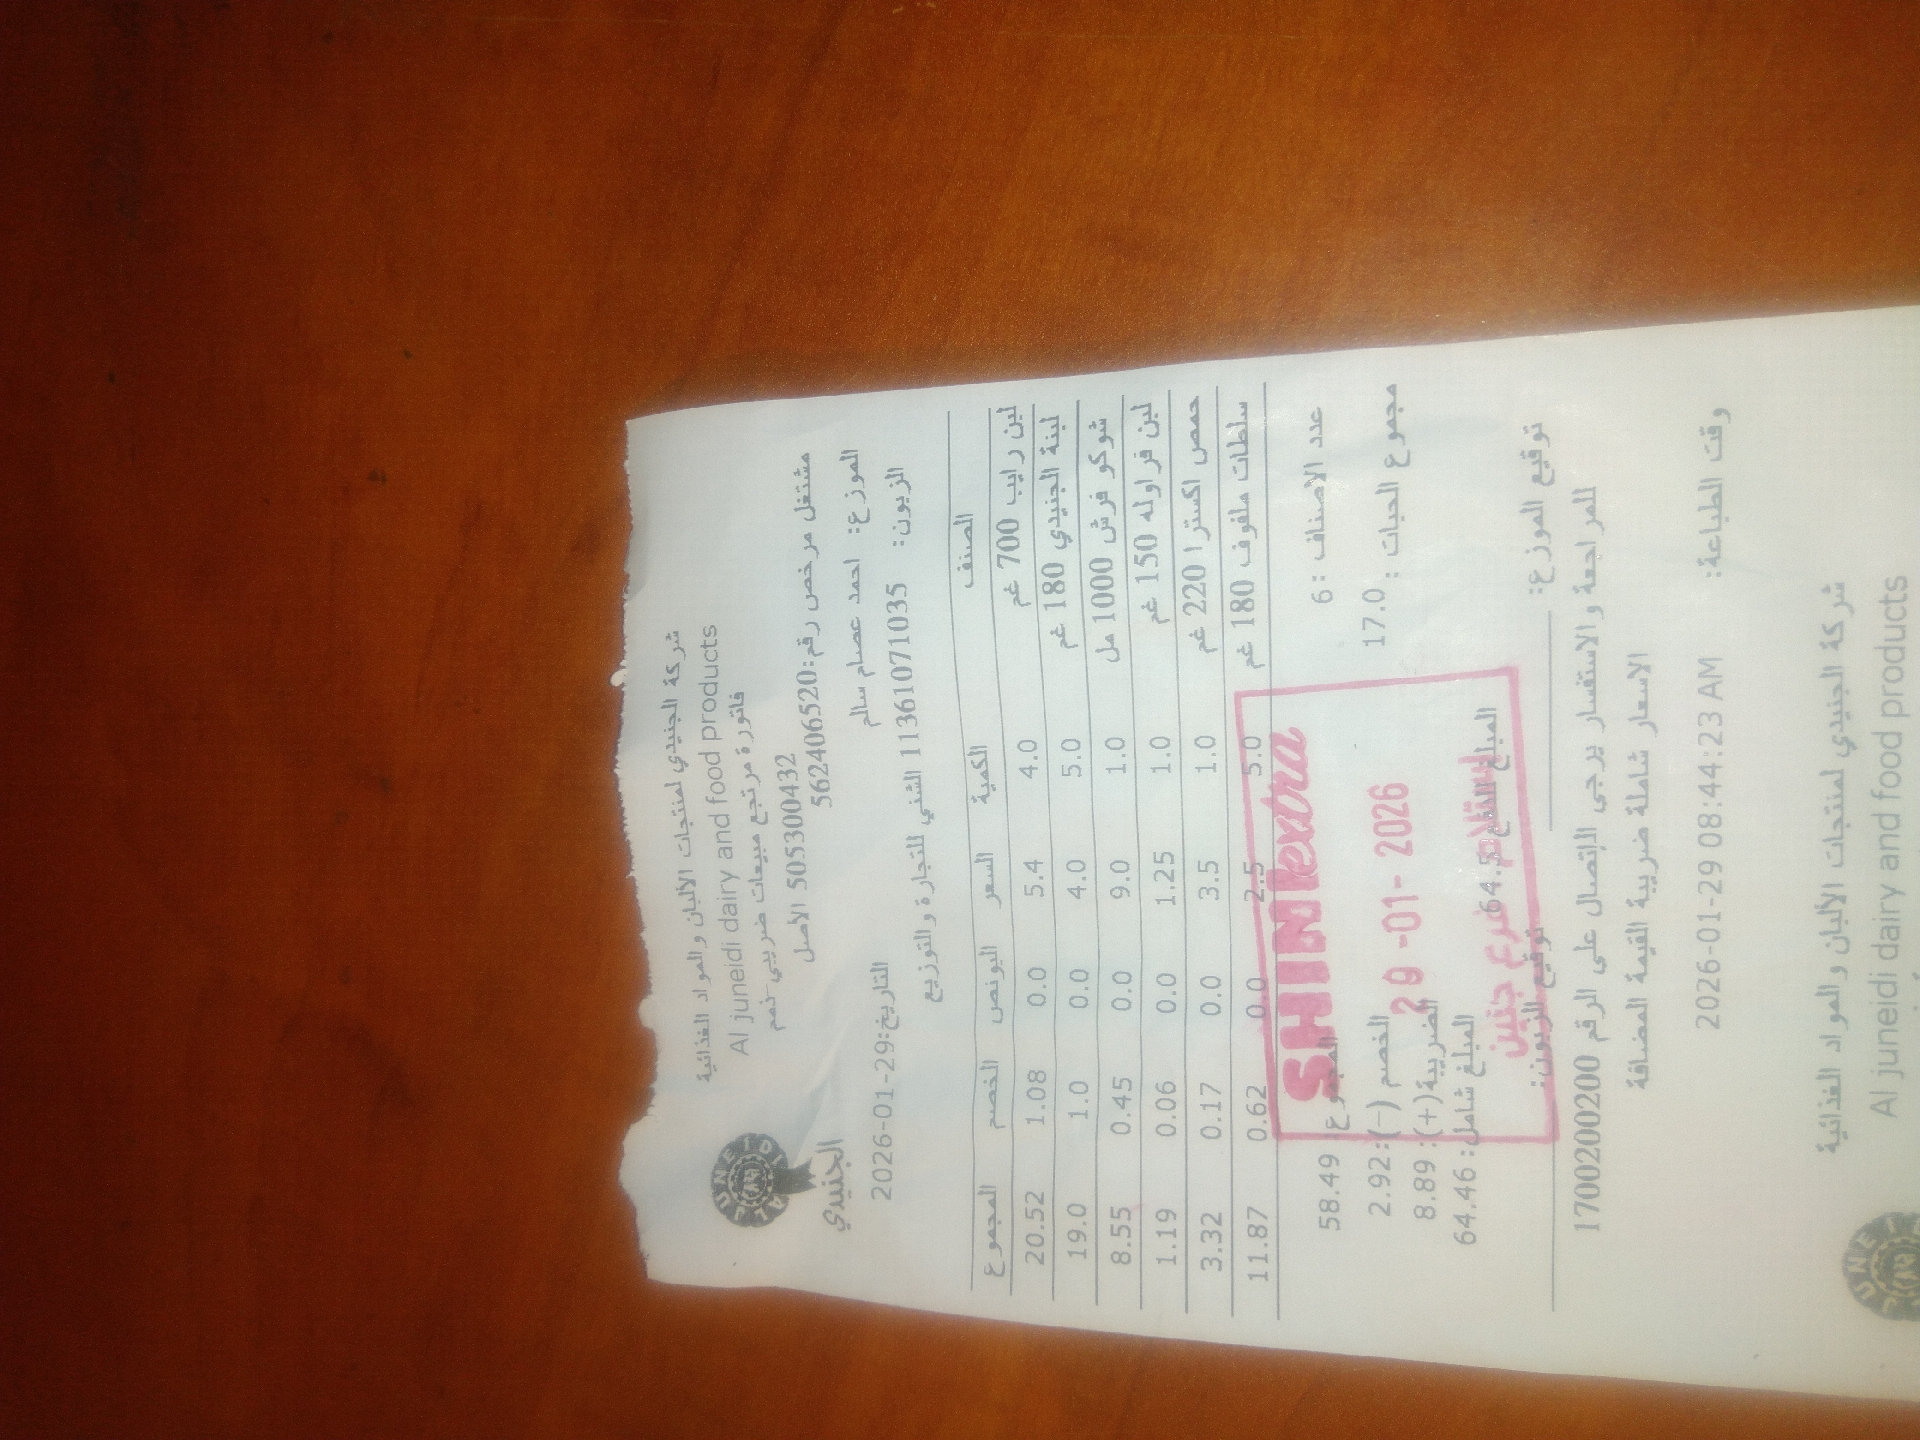 شركة الجنيدي لمنتجات الالبان والمواد الغذائية
Al juneidi dairy and food products
فاتورة مرتجع مبيعات ضريبي-ذمم
505300432 الأصل
مشتغل مرخص رقم:562406520
AL JUNEIDI
الجنيدي
الموزع: احمد عصام سالم
التاريخ:2026-01-29
الزبون: 11361071035 الشني للتجارة والتوزيع
الصنف الكمية السعر البونص الخصم المجموع
لبن رايب 700 غم 4.0 5.4 0.0 1.08 20.52
لبنة الجنيدي 180 غم 5.0 4.0 0.0 1.0 19.0
شوكو فرش 1000 مل 1.0 9.0 0.0 0.45 8.55
لبن فراوله 150 غم 1.0 1.25 0.0 0.06 1.19
حمص اكسترا 220 غم 1.0 3.5 0.0 0.17 3.32
سلطات ملفوف 180 غم 5.0 2.5 0.0 0.62 11.87
عدد الاصناف :6
المجموع: 58.49
مجموع الحبات : 17.0
الخصم (-): 2.92
الضريبة(+): 8.89
المبلغ شامل: 64.46
64.5
SHINI extra
29-01-2026
استلام فرع جنين
توقيع الموزع:
توقيع الزبون:
للمراجعة والاستفسار يرجى الإتصال على الرقم 1700200200
الاسعار شاملة ضريبة القيمة المضافة
وقت الطباعة: 2026-01-29 08:44:23 AM
شركة الجنيدي لمنتجات الالبان والمواد الغذائية
Al juneidi dairy and food products